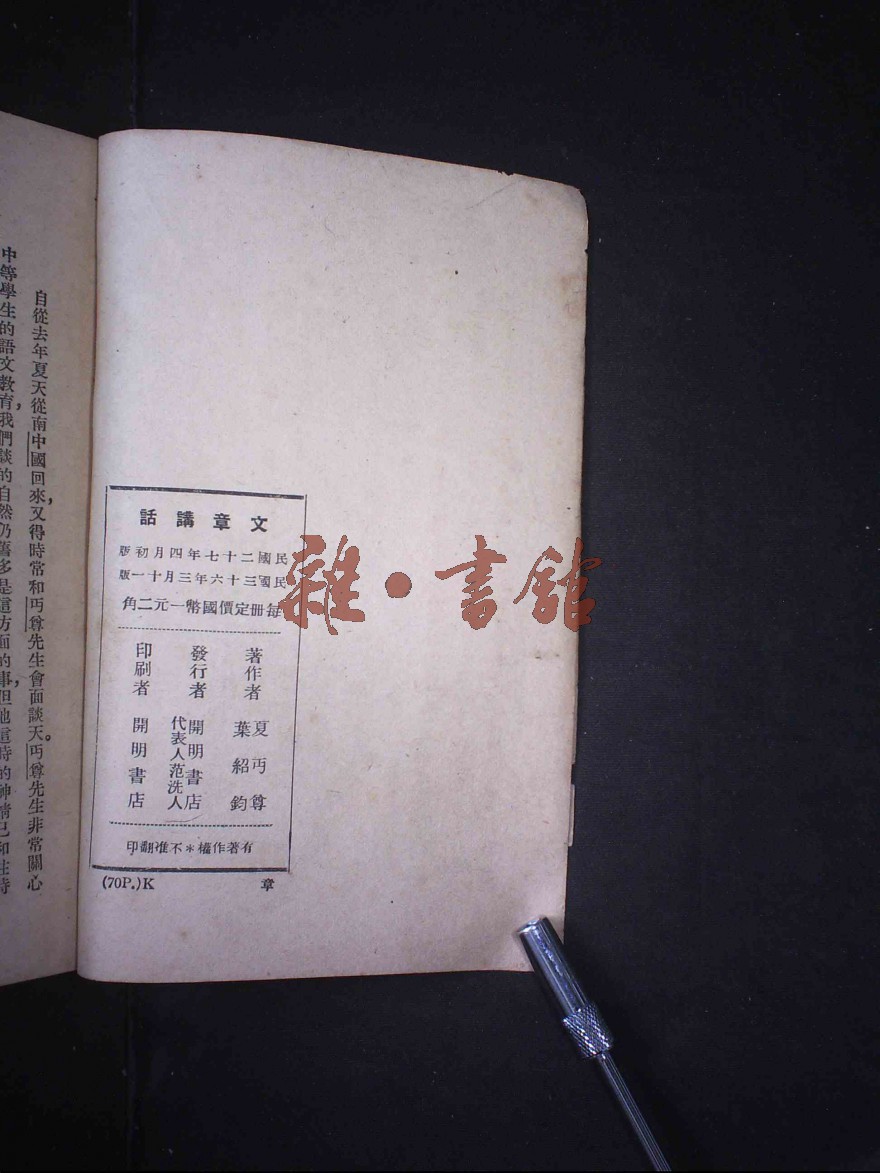 自從去年夏天從南中國回來，又得時常和丏尊先生會面談天。丏尊先生非常關心
中等學生的語文教育，我們談的自然仍舊多是這方面的事，但他這時的神情已和往時
文章講話
民國二十七年四月初版
民國三十六年三月十一版
每冊定價國幣一元二角
著作者 夏丏尊 葉紹鈞
發行者 開明書店 代表人范洗人
印刷者 開明書店
有著作權＊不准翻印
(70P.)K 章
雜·書館